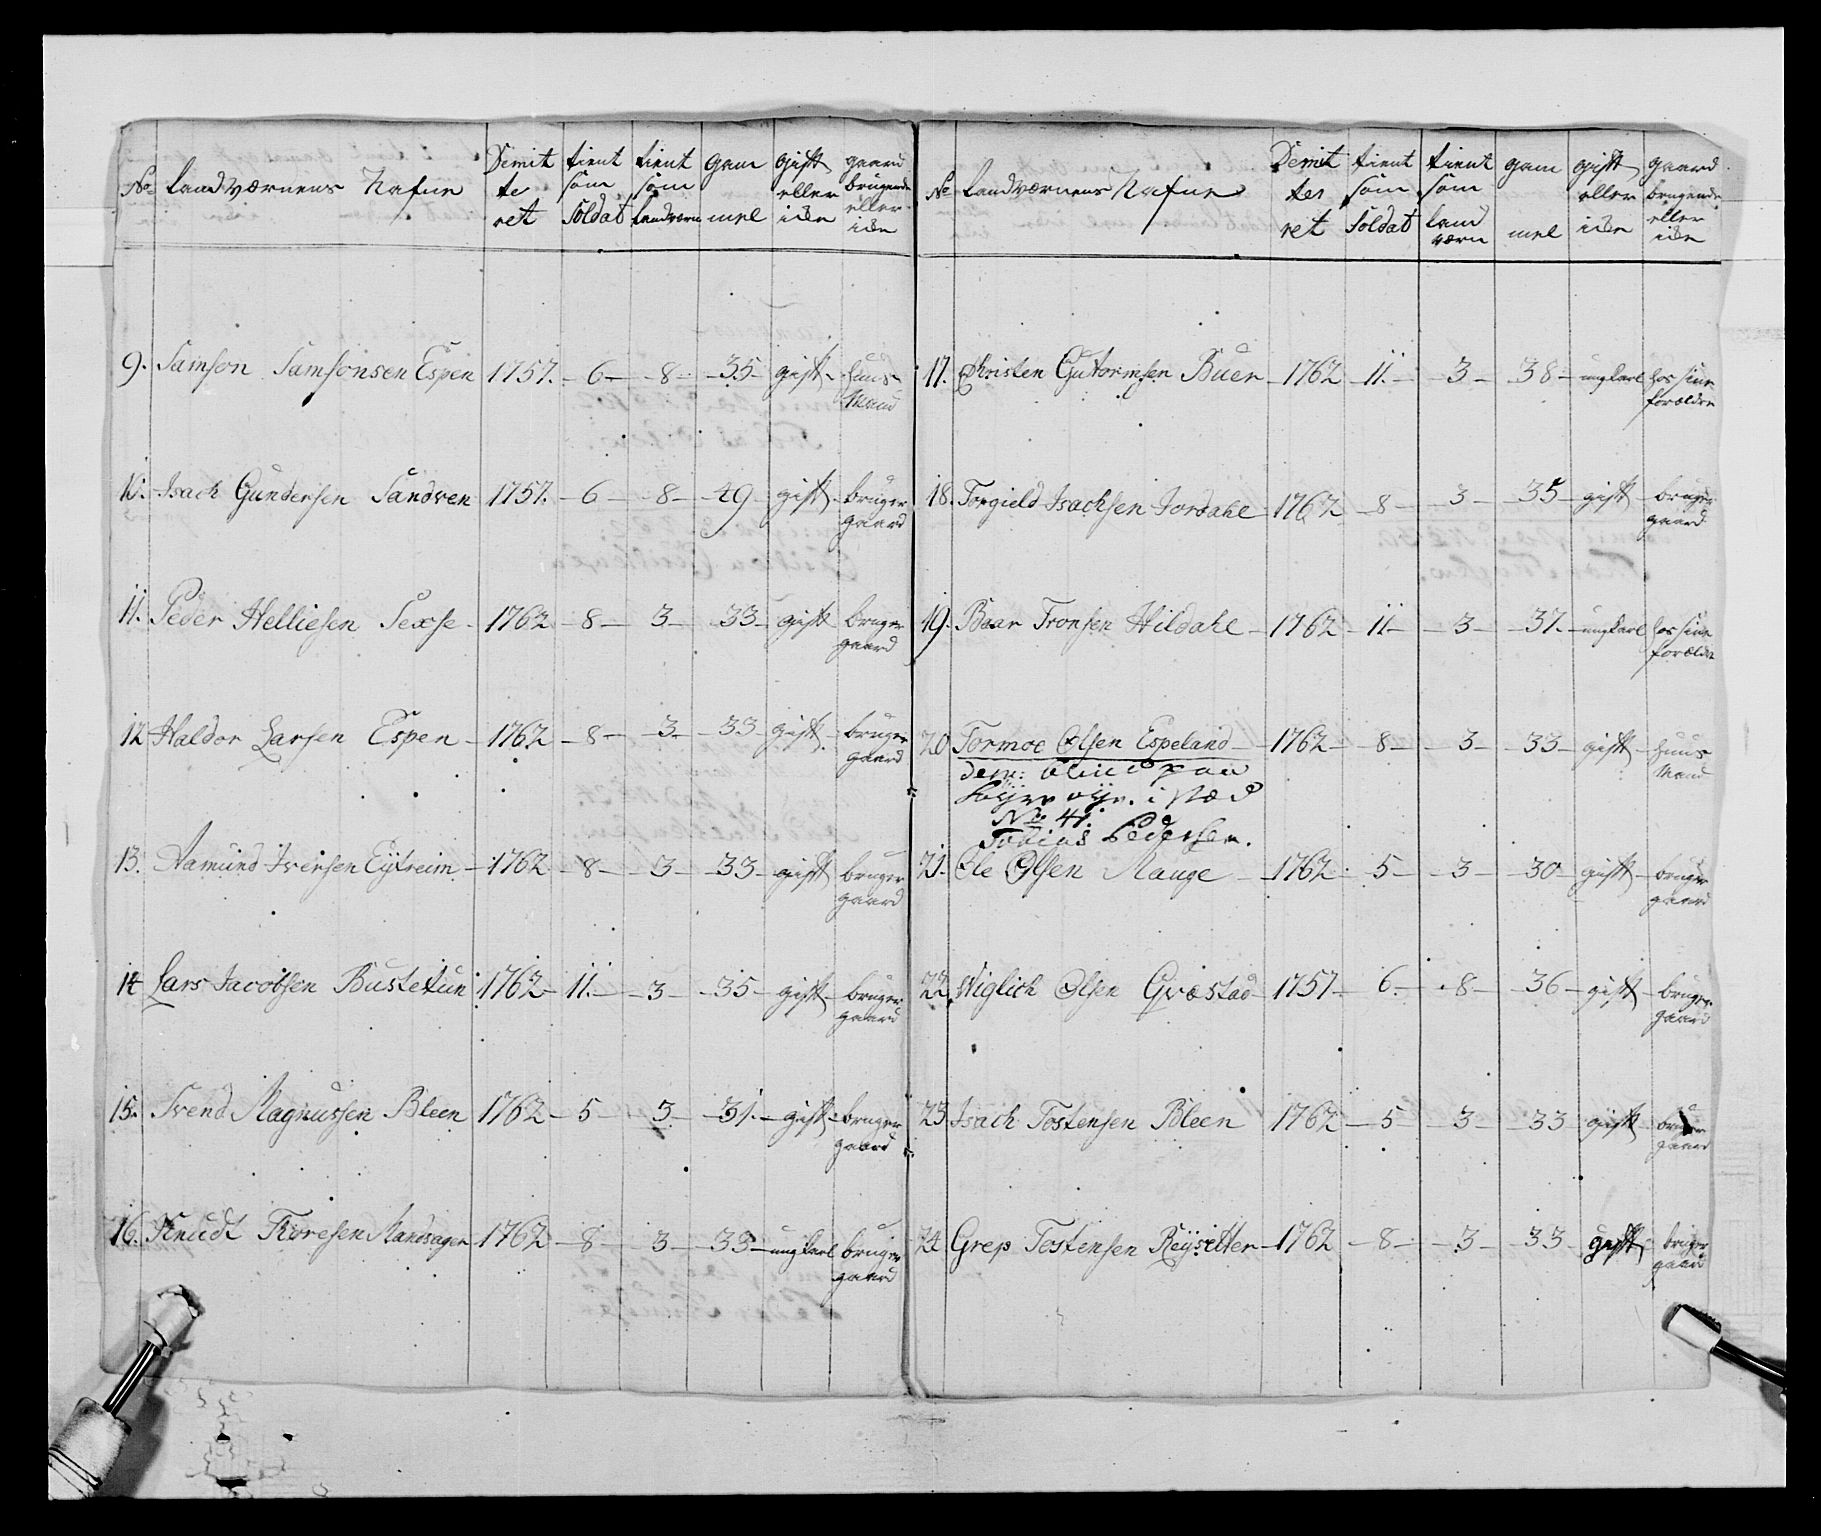 No Landværnens Nafne Demitteret tient som Soldat tient som Landværn gammel gift eller icke gaard brugende eller icke
9. Samson Samsonsen Espen 1757. 6 8 35 gift huus Mand
10. Isach Gundersen Sandven 1757. 6 8 49 gift bruger gaard
11. Peder Helliesen Sexse 1762 8 3 33 gift bruger gaard
12 Haldor Larsen Espen 1762 8 3 33 gift bruger gaard
13. Aamund Iversen Eÿtreim 1762 8 3 33 gift bruger gaard
14 Lars Jacobsen Bustetun 1762 11. 3 35 gift bruger gaard
15. Svend Magnussen Bleen 1762 5 3 31. gift bruger gaard
16. Knudt Thoresen Mandsager 1762 8 3 33 ungkarl bruger gaard
No Landværnens Nafne Demitteret tient som Soldat tient som land værn gammel gift eller icke gaard brugende eller icke
17. Christen Guttormsen Buer 1762 11. 3 38 ungkarl hos sine forældre
18. Torgield Isachsen Jordahl 1762 8 3 35 gift bruger gaard
19. Baar Tronsen Hildahl 1762 11 3 37. ungkarl hos sine forældre
20 Tormoe Olsen Espeland 1762 8 3 33 gift huus Mand
i stæd
No 41.
Tobias Pedersen.
21. Ole Olsen Mauge 1762 5 3 30 gift bruger gaard
22. Wiglich Olsen Qvæstad 1757 6. 8 36 gift bruger gaard
23. Isach Tostensen Bleen 1762 5 3 33 gift bruger gaard
24 Grep Tostensen Reÿsetter 1762 8 3 33 gift bruger gaard